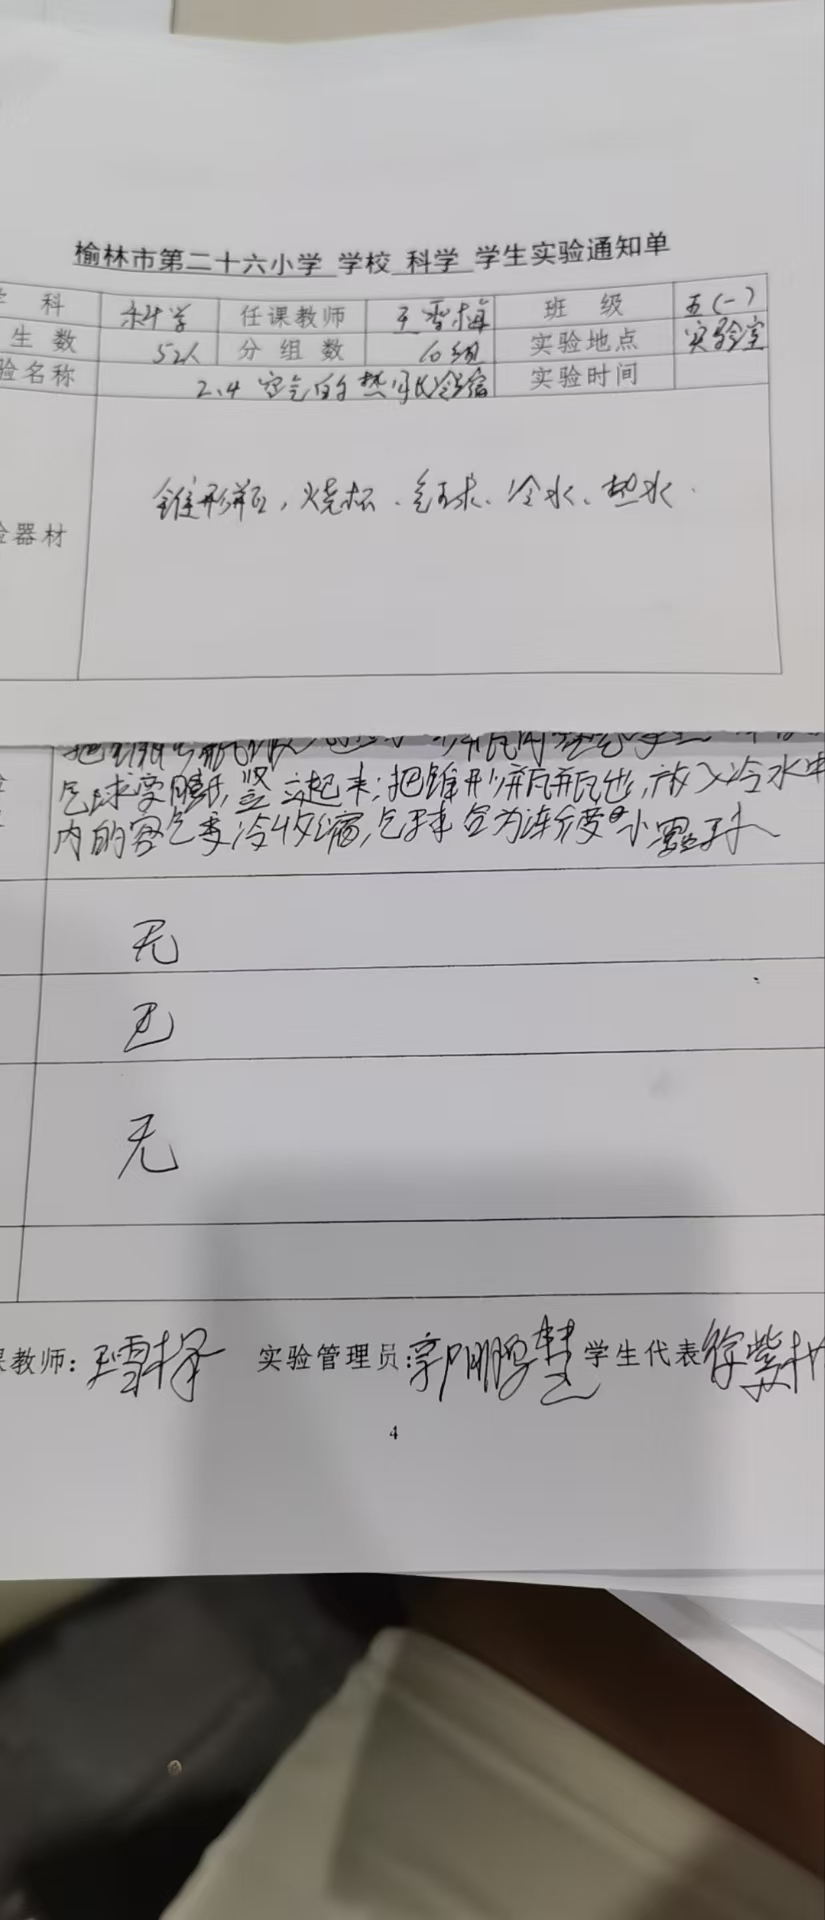 榆林市第二十六小学 学校 科学 学生实验通知单
科 科学 任课教师 王雪梅 班级 五(一)
生数 52人 分组数 10组 实验地点 实验室
验名称 2.4 空气的热胀冷缩 实验时间
器材 锥形瓶、烧杯、气球、冷水、热水.
气球变膨, 竖立起来;把锥形瓶 放入冷水中
内的空气遇冷收缩,气球会 变小
无
无
无
教师: 王雪梅 实验管理员: 学生代表
4